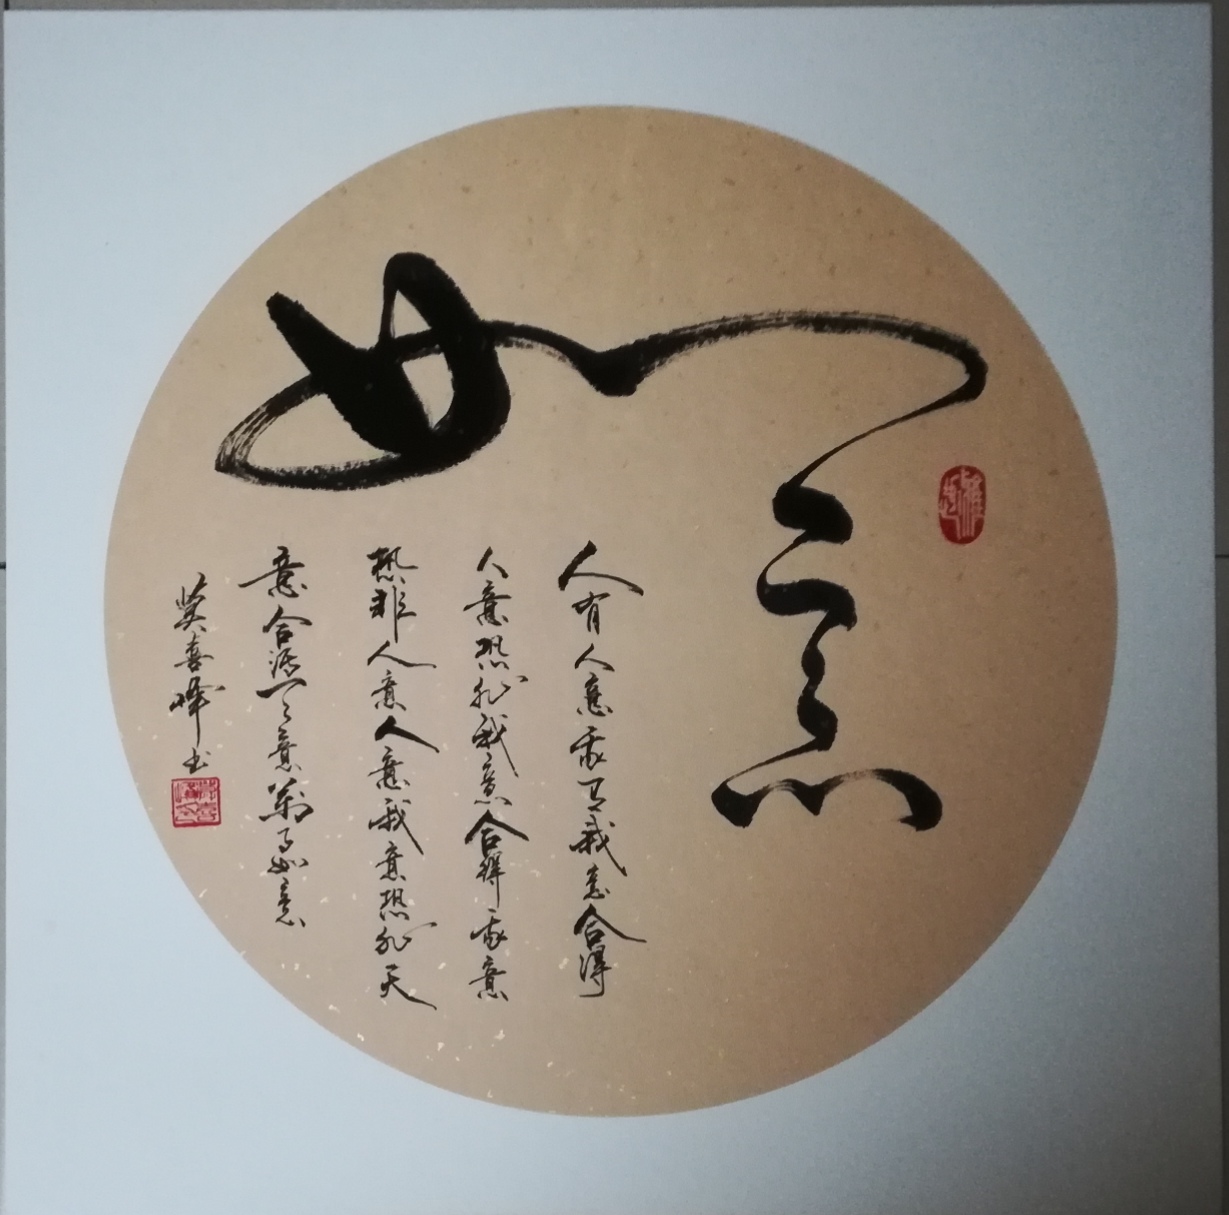 如意
人有人意我有我意合得
人意恐非我意合得我意
恐非人意人意我意恐非天
意合得天意萬事如意
喜峰书